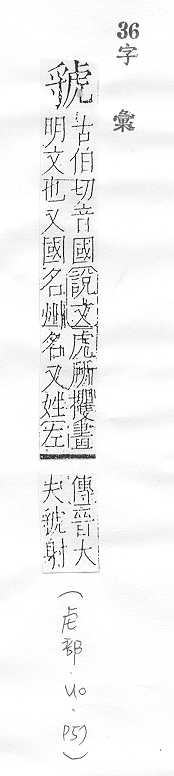 36字彙
虢
古伯切音國說文虎所攫畫
明文也又國名州名又姓左
傳晉大
夫虢射
(虍部·40·P57)